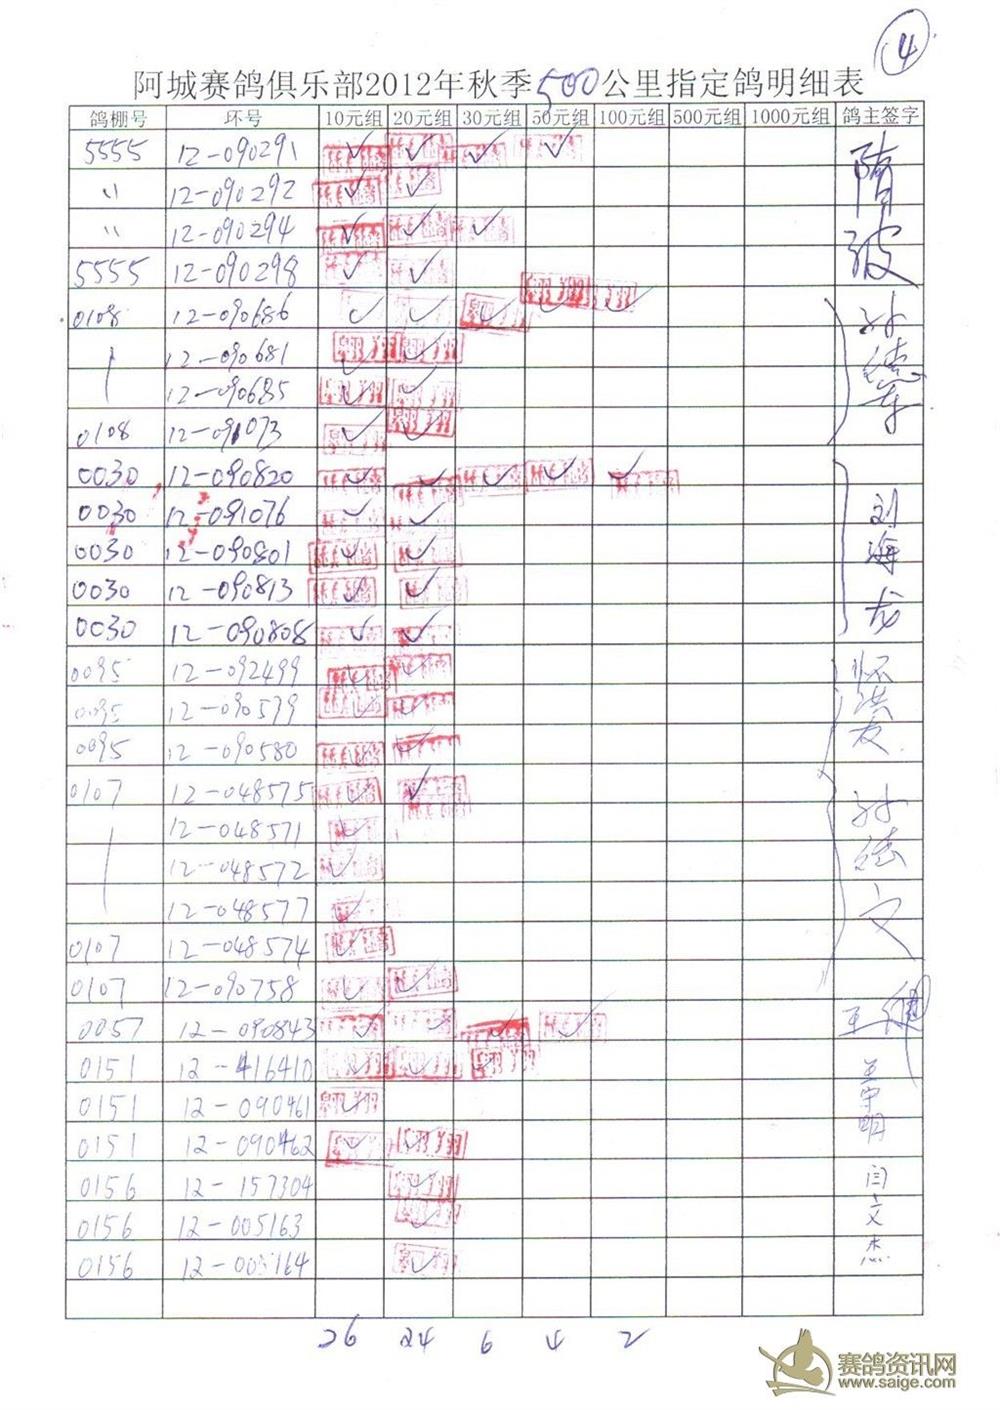 4
阿城赛鸽俱乐部2012年秋季500公里指定鸽明细表
鸽棚号 环号 10元组 20元组 30元组 50元组 100元组 500元组 1000元组 鸽主签字
5555 12-090291 ✓ ✓ ✓ ✓ 隋波
〃 12-090292 ✓ ✓
〃 12-090294 ✓ ✓ ✓
5555 12-090298 ✓ ✓
0108 12-090686 ✓ ✓ ✓ ✓ ✓ 孙德军
12-090681 ✓ ✓
12-090685 ✓ ✓
0108 12-091073 ✓ ✓
0030 12-090820 ✓ ✓ ✓ ✓ ✓ 刘海龙
0030 12-091076 ✓ ✓
0030 12-090801 ✓ ✓
0030 12-090813 ✓ ✓
0030 12-090808 ✓ ✓
0095 12-092499 ✓ ✓
0095 12-090579 ✓ ✓
0095 12-090580 ✓ ✓
0107 12-048575 ✓ ✓ 孙德文
12-048571 ✓
12-048572 ✓
12-048577 ✓
0107 12-048574 ✓
0107 12-090758 ✓ ✓
0057 12-090843 ✓ ✓ ✓ ✓ 王健
0151 12-416410 ✓ ✓ ✓
0151 12-090461 ✓
0151 12-090462 ✓ ✓
0156 12-157304 ✓ 闫文杰
0156 12-005163 ✓
0156 12-005164 ✓
26 24 6 4 2
赛鸽资讯网
www.saige.com